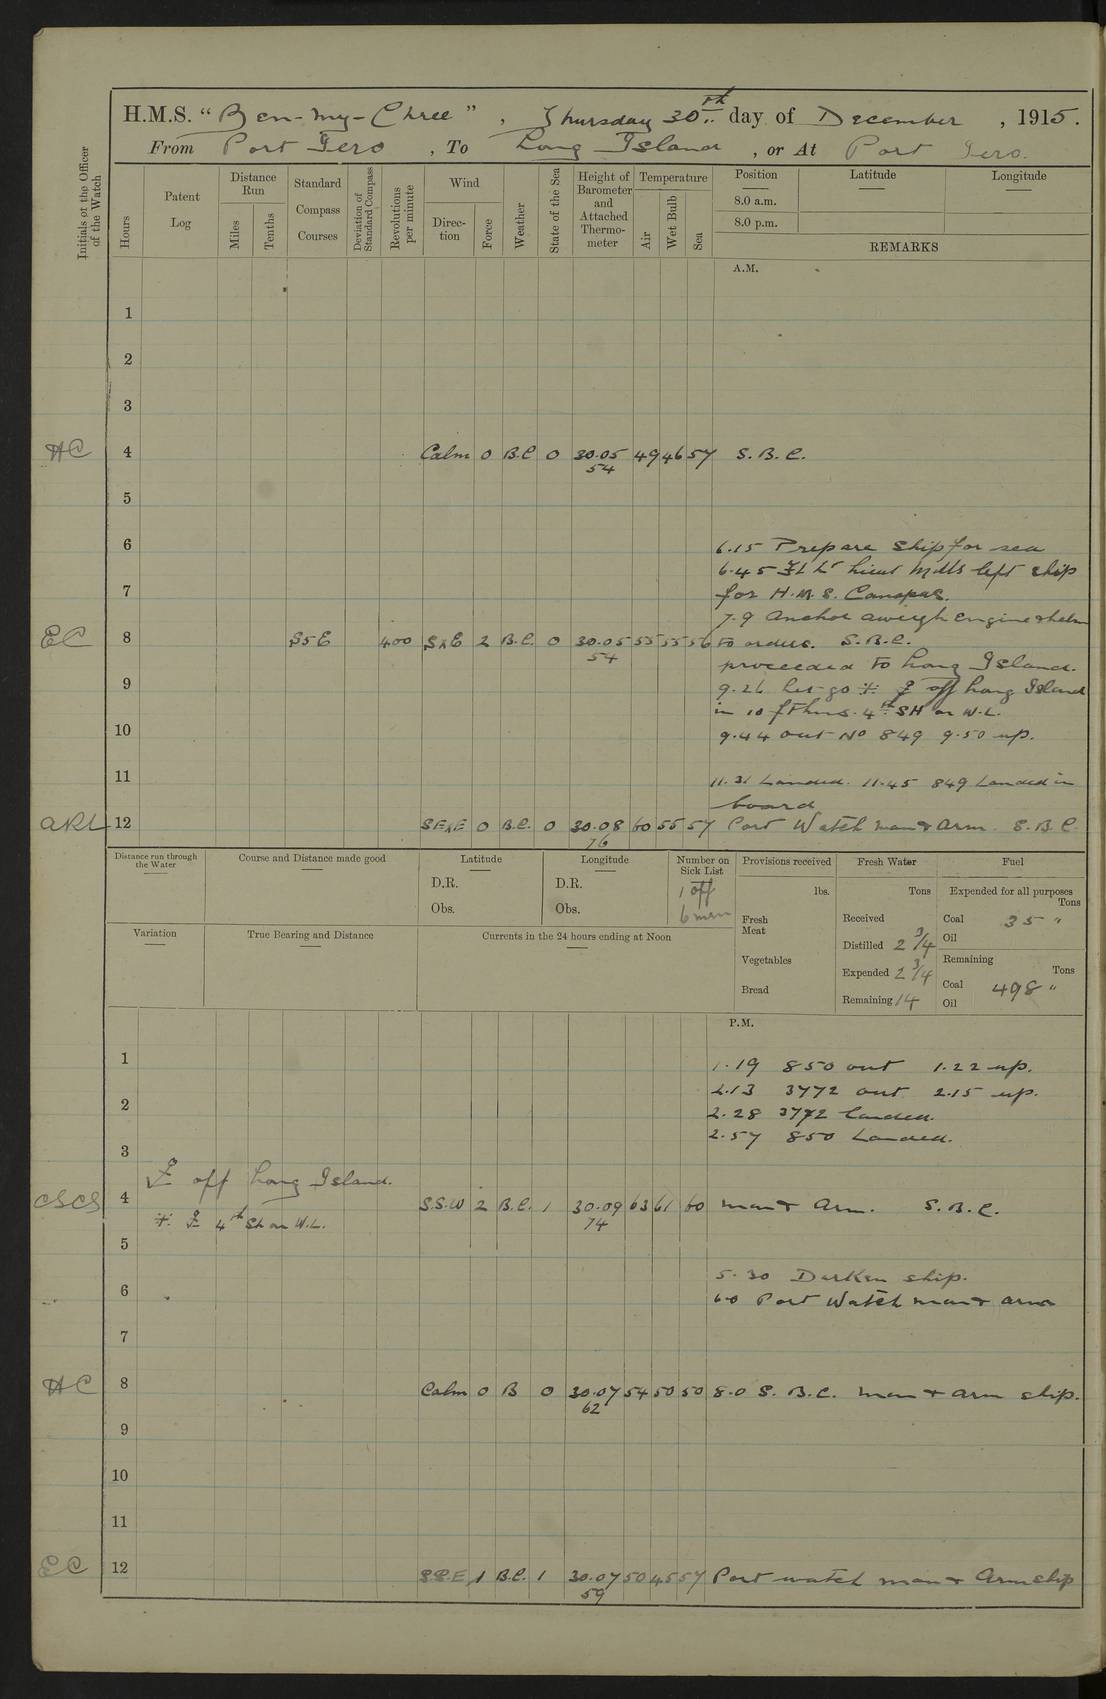 H.M.S. “Ben-my-Chree”, Thursday 30th day of December, 1915.
From Port Iero, To Long Island, or At Port Iero.
Initials of the Officer of the Watch
Hours
Patent Log
Distance Run
Miles
Tenths
Standard Compass Courses
Deviation of Standard Compass
Revolutions per minute
Wind
Direction
Force
Weather
State of the Sea
Height of Barometer and Attached Thermometer
Temperature
Air
Wet Bulb
Sea
Position Latitude Longitude
8.0 a.m.
8.0 p.m.
REMARKS
A.M.
1
2
3
HC 4 Calm 0 B.C 0 30.05 49 46 57 S.B.C.
54
5
6
6.15 Prepare ship for sea
6.45 left ship
7
for H.M.S. Canopus.
7.9 Anchor aweigh Engine & helm
EC 8 S5E 400 SxE 2 B.C. 0 30.05 55 55 56 to orders. S.B.C.
54
proceeded to Long Island.
9
9.26 Let go off Long Island
in 10 fthms. 4th SH on W.L.
10
9.44 out No 849 9.50 up.
11
11.31 Landed. 11.45 849 Landed in
board
ARL 12 SExE 0 B.C. 0 30.08 60 55 57 Port Watch man & Arm. S.B.C.
76
Distance run through the Water
Course and Distance made good
Latitude
D.R.
Obs.
Longitude
D.R.
Obs.
Number on Sick List
1 off
6 men
Provisions received
lbs.
Fresh Meat
Vegetables
Bread
Fresh Water
Tons
Received
Distilled 2 3/4
Expended 2 3/4
Remaining 14
Fuel
Expended for all purposes
Tons
Coal 35 "
Oil
Remaining
Tons
Coal 498 "
Oil
Variation
True Bearing and Distance
Currents in the 24 hours ending at Noon
P.M.
1
1.19 850 out 1.22 up.
2.13 3772 out 2.15 up.
2
2.28 3772 landed.
2.57 850 Landed.
3
off Long Island.
CSCS 4 S.S.W 2 B.C. 1 30.09 63 61 60 man & Arm. S.B.C.
74
4th Sh on W.L.
5
5.30 Darken ship.
6
6.0 Port Watch man & arm
7
HC 8 Calm 0 B 0 30.07 54 50 50 8.0 S.B.C. man & arm ship.
62
9
10
11
EC 12 S.S.E 1 B.C. 1 30.07 50 45 57 Port watch man & Arm ship
59